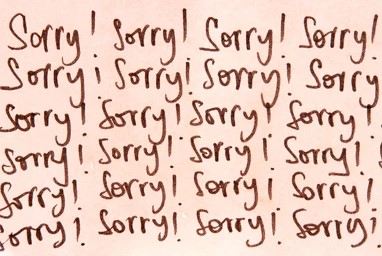 Sorry! Sorry! Sorry! Sorry!
Sorry! Sorry! Sorry! Sorry
Sorry! Sorry! Sorry! Sorry!
Sorry! Sorry! Sorry! Sorry!
Sorry! Sorry! Sorry! Sorry!
Sorry! Sorry! Sorry! Sorry!